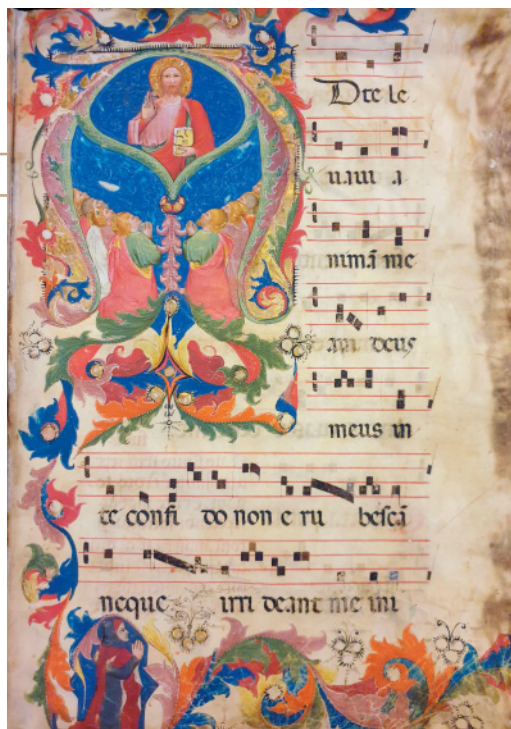 D te le
uaui a
nimā me
am deus
meus in
te confi do non e ru bescā
neque irri deant me ini